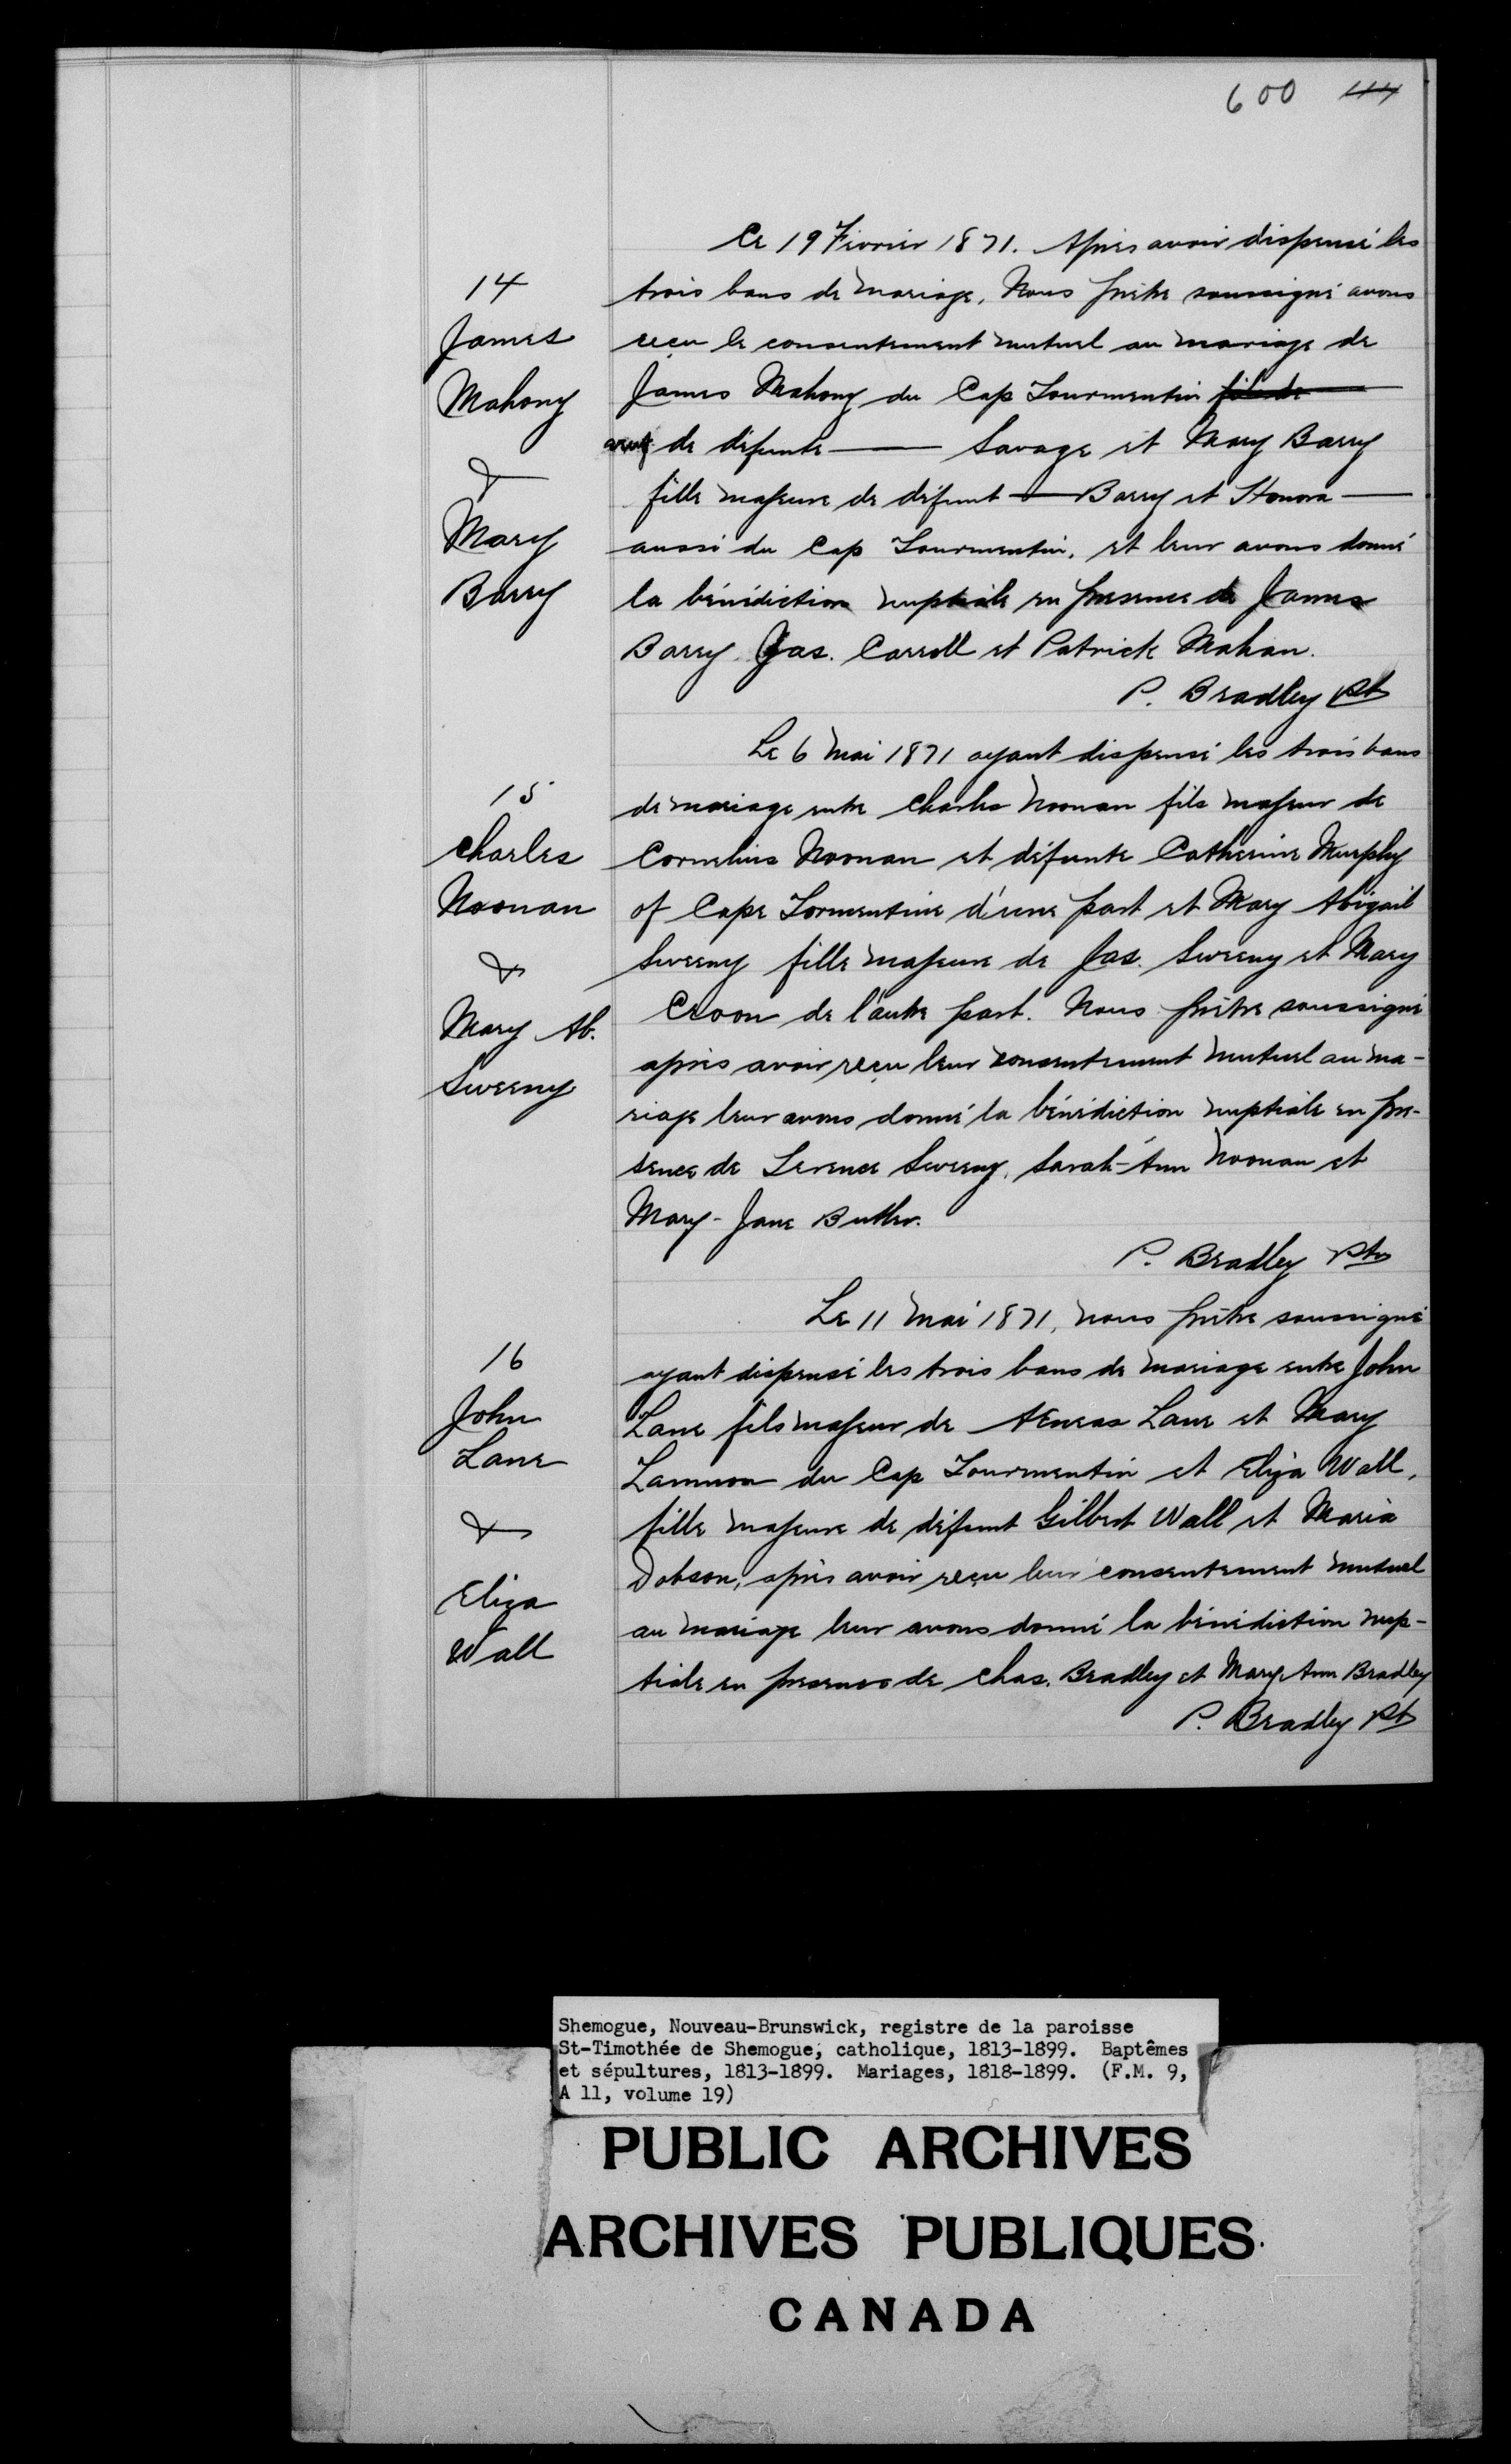 600 114
Ce 19 Février 1871. Après avoir dispensé les
14
trois bans de mariage, Nous prêtre soussigné avons
James
reçu le consentement mutuel au mariage de
Mahony
James Mahony du Cap Tourmentin fils de
veuf de défunte — Savage et Mary Barry
&
fille majeure de défunt — Barry et Honora —
Mary
aussi du Cap Tourmentin, et leur avons donné
Barry
la bénédiction nuptiale en présence de James
Barry Jas. Carroll et Patrick Mahan.
P. Bradley Pt
Le 6 Mai 1871 ayant dispensé les trois bans
15
de mariage entre Charles Noonan fils majeur de
Charles
Cornelius Noonan et défunte Catherine Murphy
Noonan
of Cape Tormentine d'une part et Mary Abigail
&
Sweeny fille majeure de Jas. Sweeny et Mary
Mary Ab.
Croon de l'autre part. Nous prêtre soussigné
Sweeny
après avoir reçu leur consentement mutuel au ma-
riage leur avons donné la bénédiction nuptiale en pré-
sence de Terence Sweeny, Sarah-Ann Noonan et
Mary-Jane Butler.
P. Bradley Ptr
Le 11 Mai 1871, nous prêtre soussigné
16
ayant dispensé les trois bans de mariage entre John
John
Lane fils majeur de AEneas Lane et Mary
Lane
Lannon du Cap Tourmentin et Eliza Wall,
&
fille majeure de défunt Gilbert Wall et Maria
Eliza
Dobson, après avoir reçu leur consentement mutuel
Wall
au mariage leur avons donné la bénédiction nup-
tiale en presence de Chas. Bradley et Mary Ann Bradley
P. Bradley Pt
Shemogue, Nouveau-Brunswick, registre de la paroisse
St-Timothée de Shemogue, catholique, 1813-1899. Baptêmes
et sépultures, 1813-1899. Mariages, 1818-1899. (F.M. 9,
A 11, volume 19)
PUBLIC ARCHIVES
ARCHIVES PUBLIQUES
CANADA